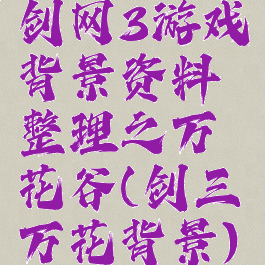 剑网3游戏
背景资料
整理之万
花谷(剑三
万花背景)